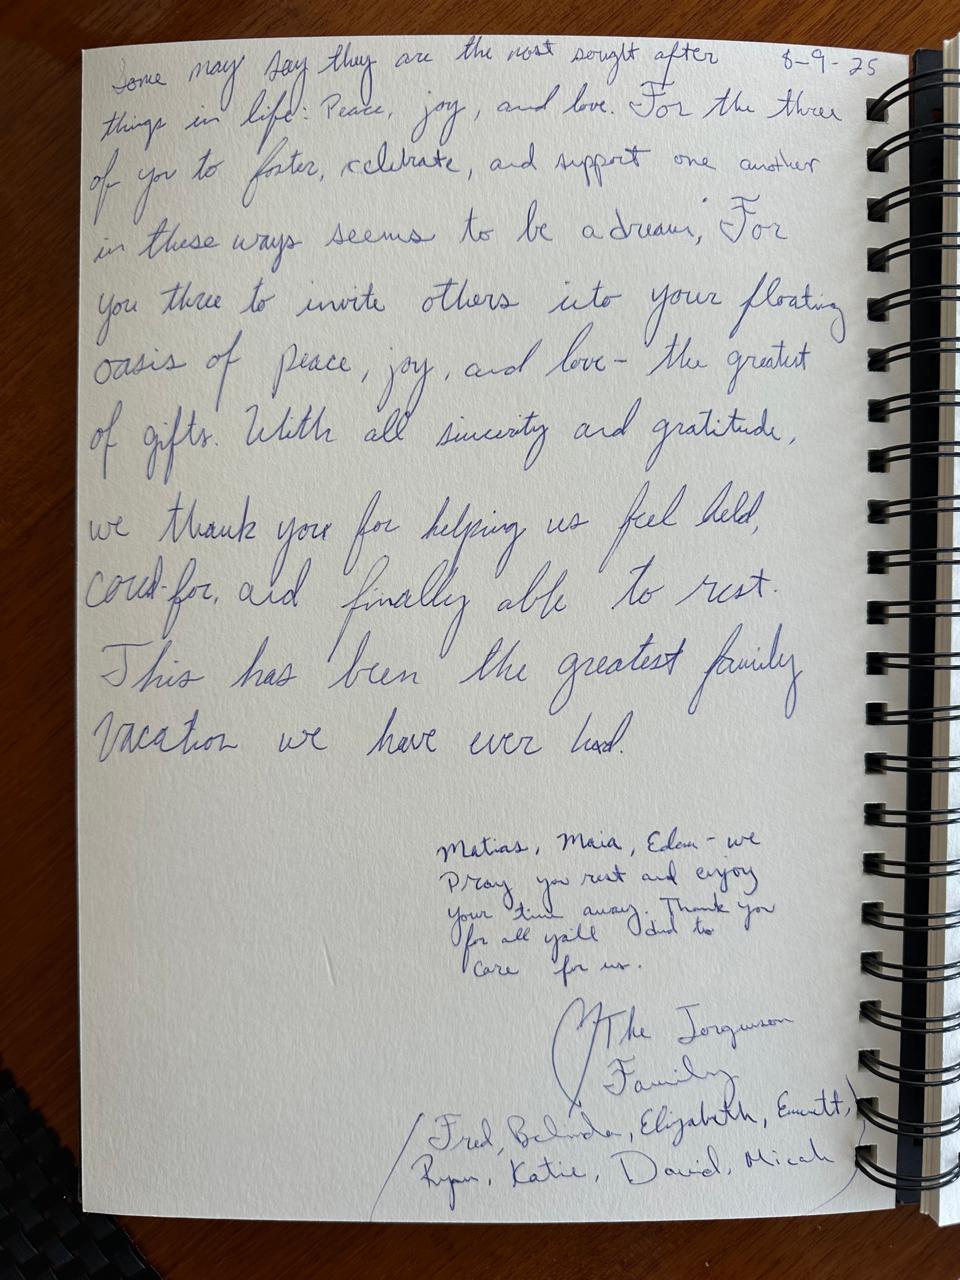 Some may say they are the most sought after 8-9-25
things in life: Peace, joy, and love. For the three
of you to foster, celebrate, and support one another
in these ways seems to be a dream; For
you three to invite others into your floating
oasis of peace, joy, and love- the greatest
of gifts. With all sincerity and gratitude,
we thank you for helping us feel held,
cared-for, and finally able to rest.
This has been the greatest family
vacation we have ever had.
Matias, Maia, Eden - we
pray you rest and enjoy
your time away. Thank you
for all y'all did to
care for us.
The Jorgenson
Family
(Fred, Belinda, Elizabeth, Emmett,
Ryan, Katie, David, Micah)